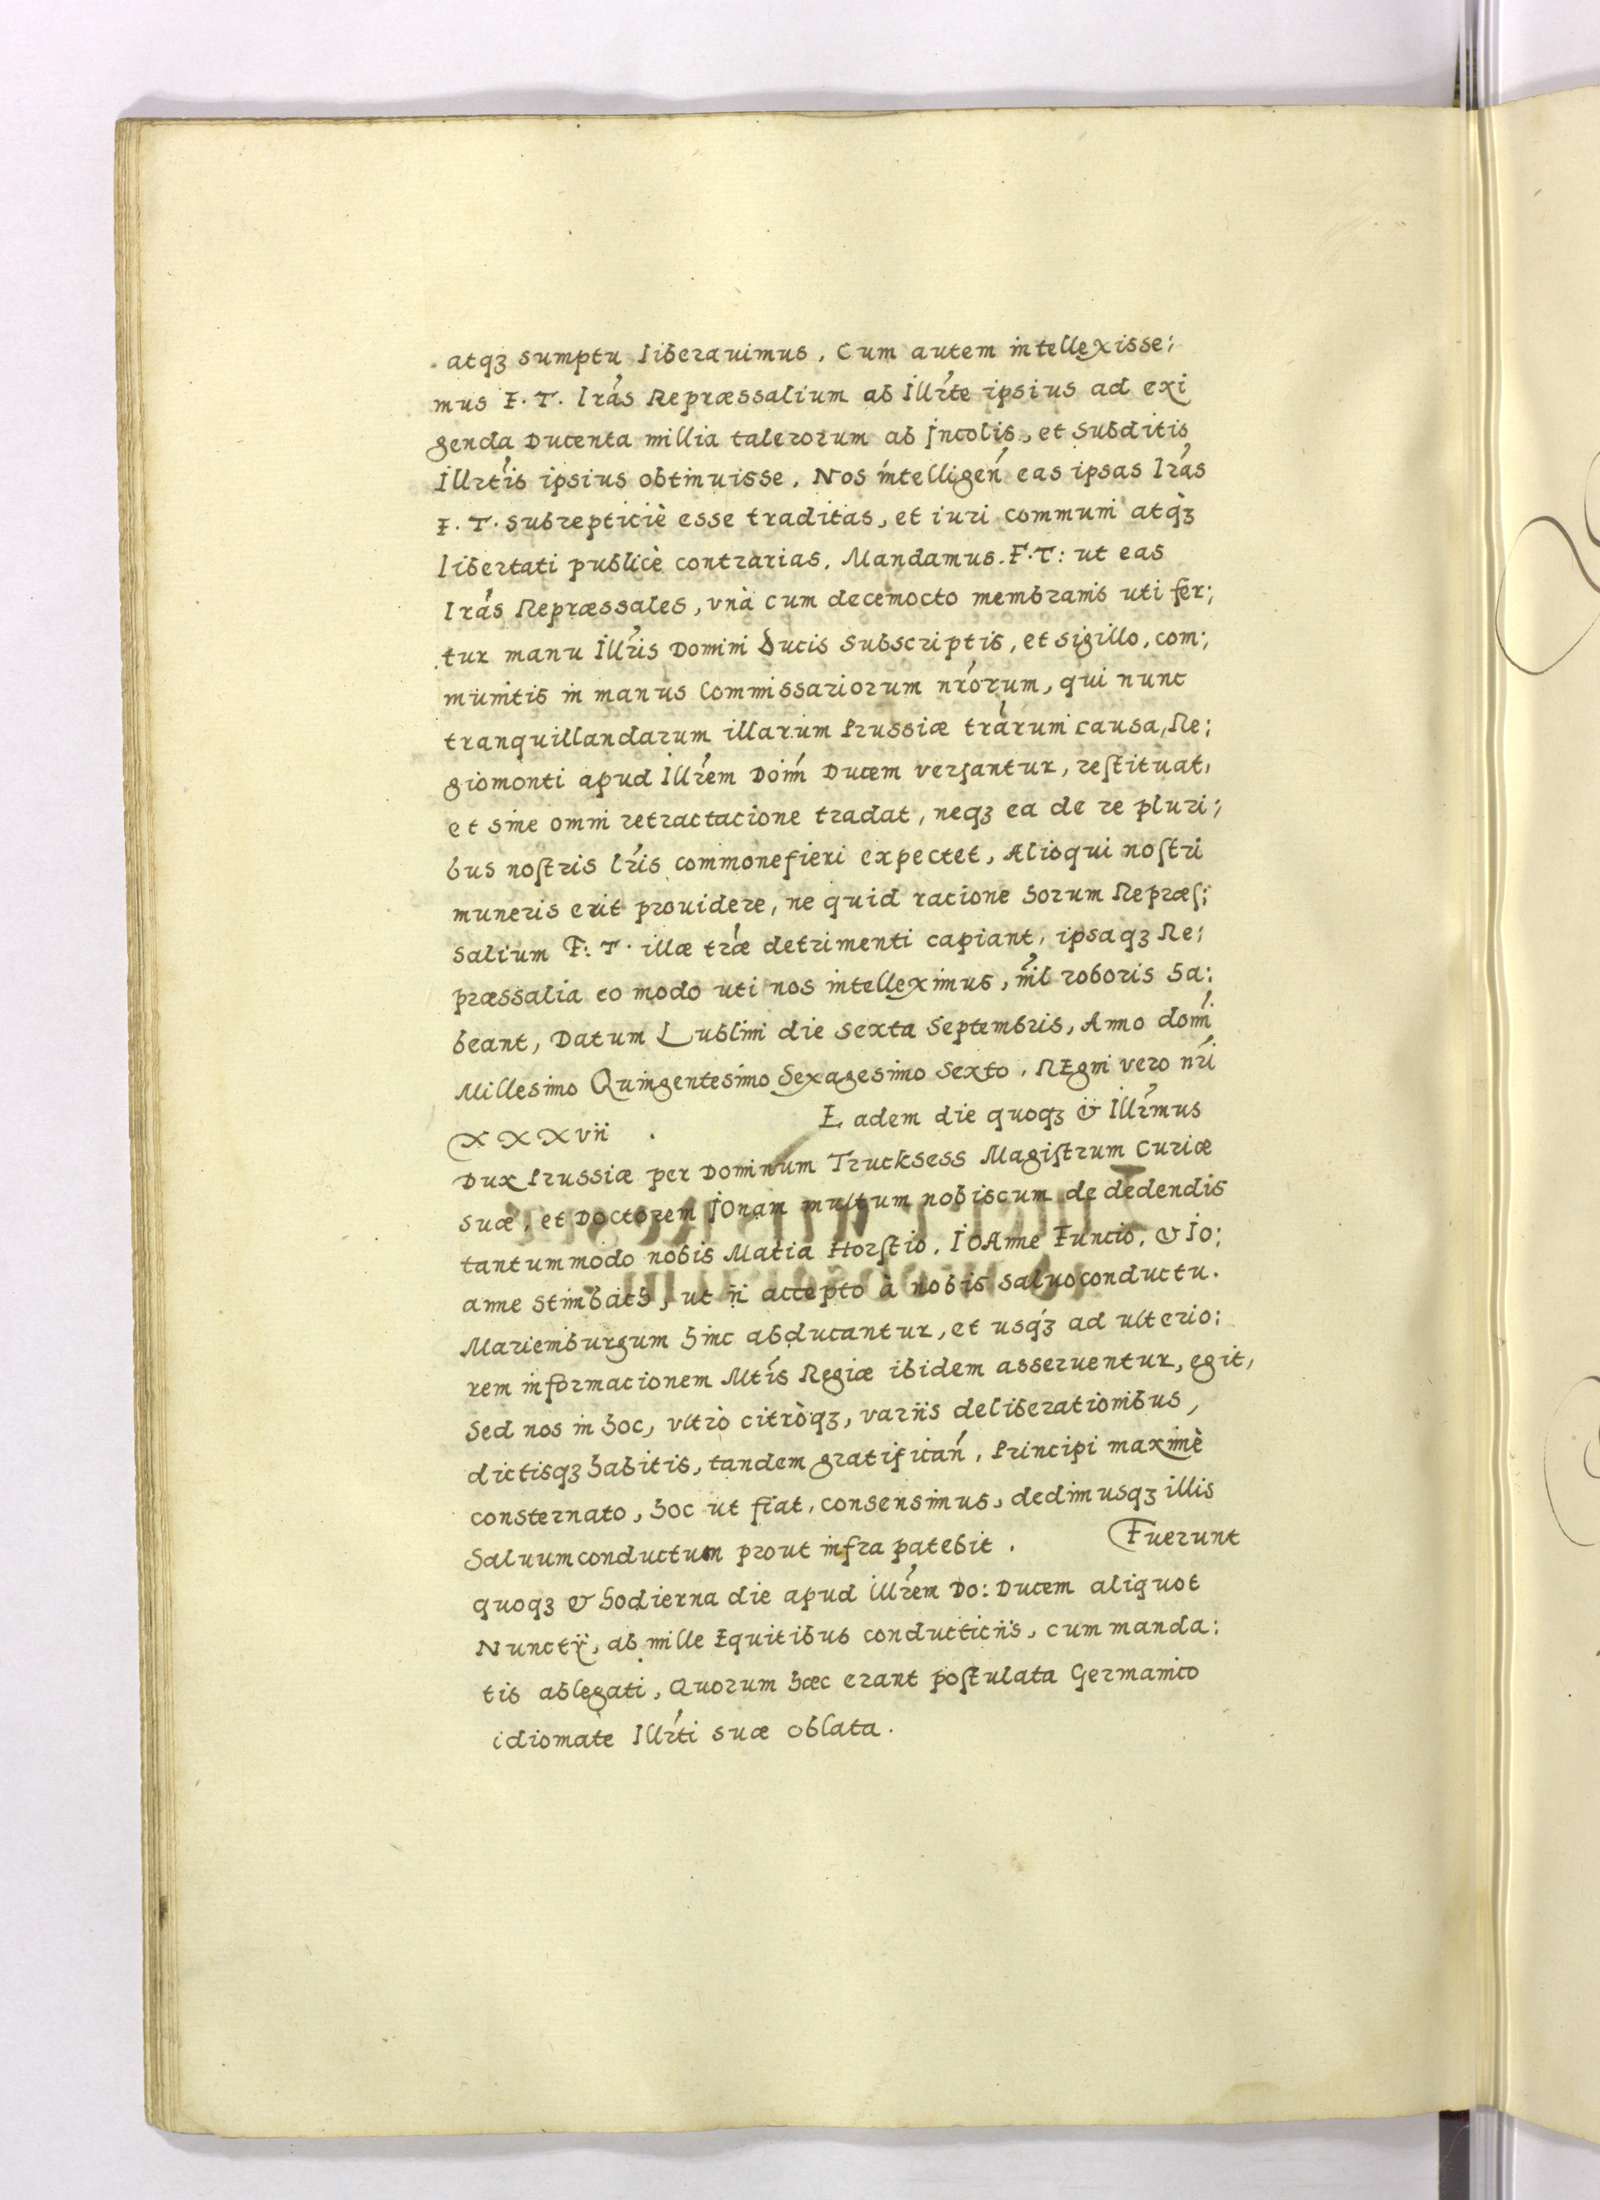 atqꝫ sumptu liberauimus, Cum autem intellexisse;
mus F. T. lr̃as Repræssalium ab Illr̃te ipsius ad exi
genda Ducenta millia talerorum ab Incolis, et Subditis
Illr̃tis ipsius obtinuisse. Nos intelligeń eas ipsas lr̃as
F. T. subrepticiè esse traditas, et iuri communi atq̀ꝫ
libertati publicè contrarias, Mandamus. F. T: ut eas
lr̃as Repræssales, vnà cum decemocto membranis uti fer;
tur manu Illr̃is Domini Ducis Subscriptis, et sigillo, com;
munitis in manus Commissariorum nr̃orum, qui nunc
tranquillandarum illarum Prussiæ tr̃arum causa, Re;
giomonti apud Illr̃em Doiḿ Ducem versantur, restituat,
et sine omni retractacione tradat, neqꝫ ea de re pluri;
bus nostris lr̃is commonefieri expectet, Alioqui nostri
muneris erit prouidere, ne quid racione horum Repræs;
salium F: T. illæ tr̃æ detrimenti capiant, ipsaqꝫ Re;
præssalia eo modo uti nos intelleximus, nil roboris ha;
beant, Datum Lublini die sexta Septembris, Anno domĩ
Millesimo Quingentesimo Sexagesimo Sexto, REgni vero nr̃i
XXXvii . Eadem die quoqꝫ & Illr̃imus
Dux Prussiæ per Dominum Trucksess Magistrum Curiæ
suæ, et Doctorem IOnam multum nobiscum de dedendis
tantummodo nobis Matia Horstio, IOAnne Funcio, & Io;
anne Stinbach, ut ii accepto à nobis saluoconductu.
Mariemburgum hinc abducantur, et usq́ꝫ ad ulterio;
rem informacionem Mt́is Regiæ ibidem asseruentur, egit,
Sed nos in hoc, vltrò citròqꝫ, variis deliberationibus,
dictisqꝫ habitis, tandem gratificań, Principi maximè
consternato, hoc ut fiat, consensimus, dedimusqꝫ illis
Saluumconductum prout infra patebit . Fuerunt
quoqꝫ & hodierna die apud illr̃em Do: Ducem aliquot
Nunctÿ, ab mille Equitibus conducticiis, cum manda;
tis ablegati, Quorum hæc erant postulata Germanico
idiomate Illr̃ti suæ oblata.